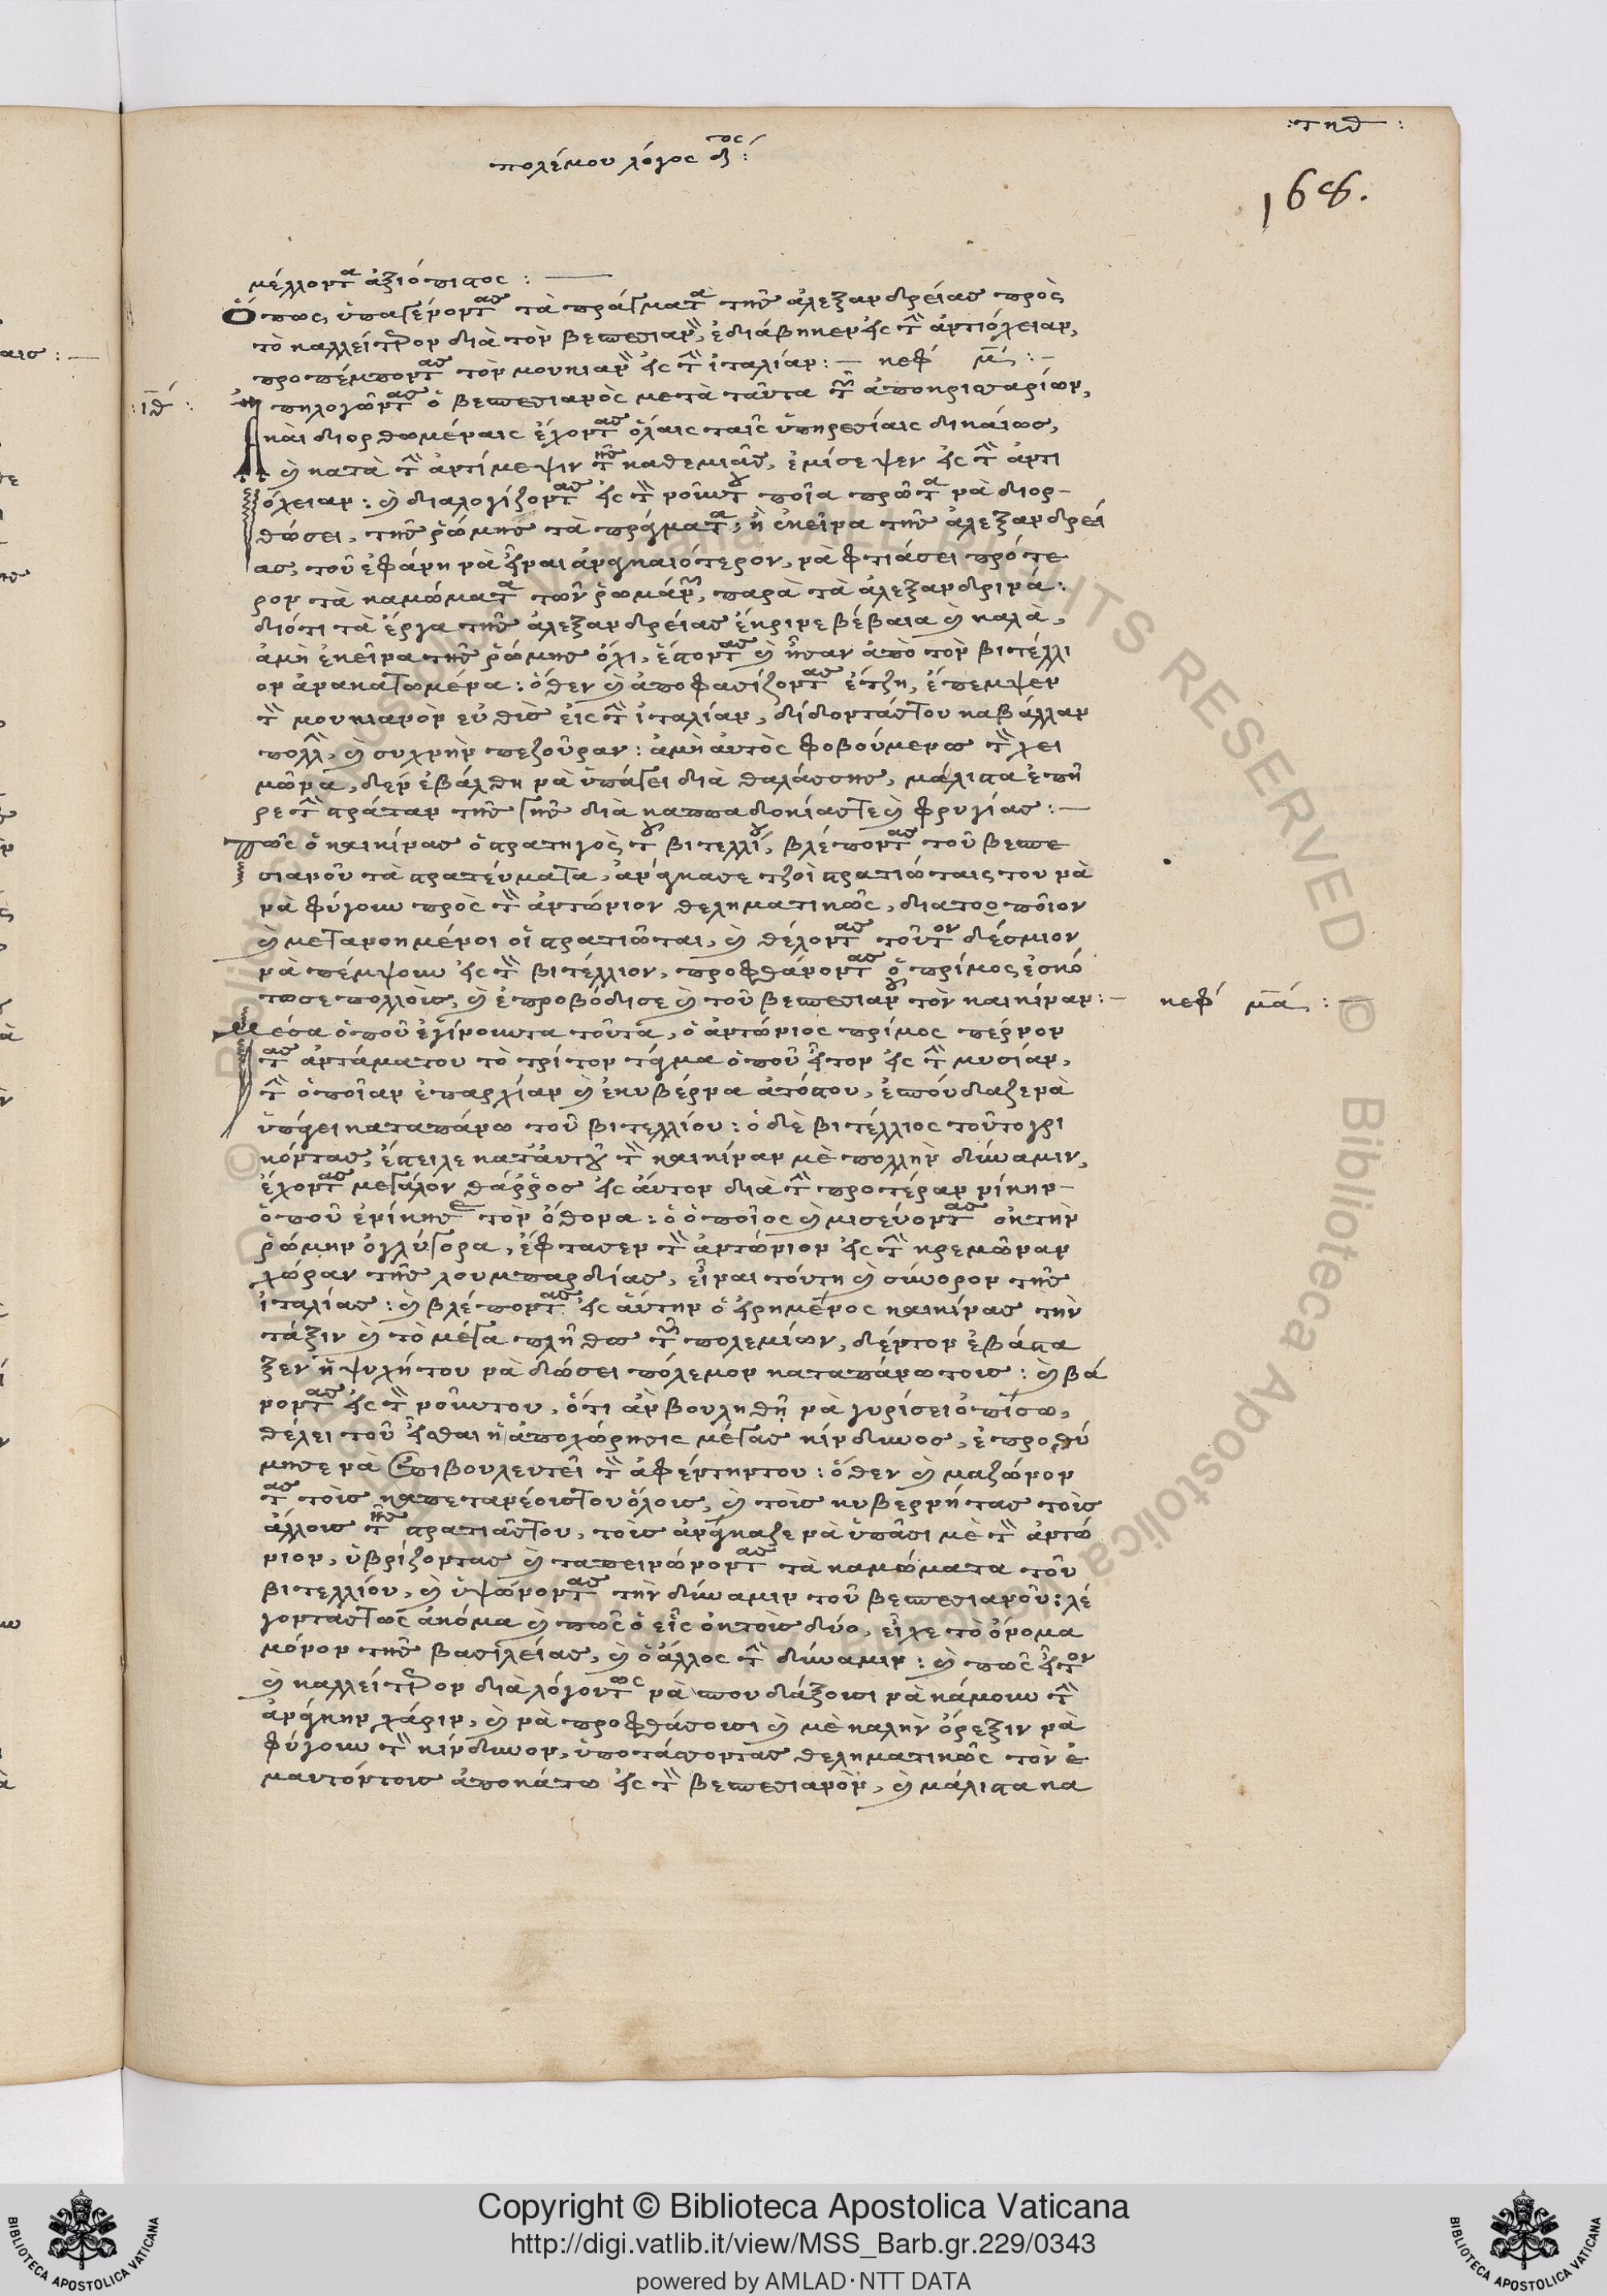 :τπθ:
πολέμου λόγος δ^τος:
168.
μέλλοντα ἀξιόπιστος :—
Ὅπως ὑπαγένοντας τὰ πράγματα τῆς ἀλεξανδρείας πρὸς
τὸ καλλείτερον διὰ τὸν βεσπεσιανὸν, ἐδιάβηκεν εἰς τὴν ἀντιόχειαν,
προπέμποντας τὸν μουκιανὸν εἰς τὴν ἰταλίαν :— κεφ μ :—
:ιθ:
πηλογῶντας ὁ βεσπεσιανὸς μετὰ ταῦτα τῶν ἀποκρισαρίων,
καὶ διορθωμέναις ἔχοντας ὅλαις ταῖς ὑπηρεσίαις δικαίως,
καὶ κατὰ τὴν ἀντίμεψιν τῆς καθεμιᾶς, ἐμίσεψεν εἰς τὴν ἀντι
όχειαν : καὶ διαλογίζοντας εἰς τὸν νοῦν του ποῖα πρῶτα νὰ διορ-
θώσει, τῆς ῥώμης τὰ πράγματα, ἢ ἐκεῖνα τῆς ἀλεξανδρεί
ας, τοῦ ἐφάνη νὰ εἶναι ἀναγκαιότερον, νὰ φτιάσει πρότε
ρον τὰ καμώματα τῶν ῥωμάνων, παρὰ τὰ ἀλεξανδρινά :
διότι τὰ ἔργα τῆς ἀλεξανδρείας ἔκρινε βέβαια καὶ καλὰ,
ἀμὴ ἐκεῖνα τῆς ῥώμης ὄχι, ἔστοντας καὶ ἦσαν ἀπὸ τὸν βιτέλλι
ον ἀνακατωμένα : ὅθεν καὶ ἀποφασίζοντας ἔτζη, ἔπεμψεν
τὸν μουκιανὸν εὐθὶς εἰς τὴν ἰταλίαν, δίδοντάς του καβάλλαν
πολλὴν, καὶ συχνὴν πεζούραν : ἀμὴ αὐτὸς φοβούμενος τὸν χει
μῶνα, δὲν ἐβάλθη νὰ ὑπάγει διὰ θαλάσσης, μάλιστα ἐπῆ
ρε τὴν στράταν τῆς γῆς διὰ καππαδοκίας τε καὶ φρυγίας :—
πῶς ὁ καικίνας ὁ στρατηγὸς τοῦ βιτελλίου, βλέποντας τοῦ βεσπε
σιανοῦ τὰ στρατεύματα, ἀνάγκασε τζοὶ στρατιώταις του νὰ
νὰ φύγουν πρὸς τὸν ἀντώνιον θεληματικῶς, διατο ὁποῖον
καὶ μετανοημένοι οἱ στρατιῶται, καὶ θέλοντας τοῦτον δέσμιον
νὰ πέμψουν εἰς τὸν βιτέλλιον, προφθάνοντας ὁ πρίμος ἐσκό
τωσε πολλοὺς, καὶ ἐπροβόδισε καὶ τοῦ βεσπεσιανοῦ τὸν καικίναν :— κεφ μα :—
μέσα ὁποῦ ἐγίνουντα τοῦτα, ὁ ἀντώνιος πρίμος πέρνον
τας ἀντάματου τὸ τρίτον τάγμα ὁποῦ ἦτον εἰς τὴν μυσίαν,
τὴν ὁποῖαν ἐπαρχίαν καὶ ἐκυβέρνα ἀτόστου, ἐσπούδαζε νὰ
ὑπάγει καταπάνω τοῦ βιτελλίου : ὁ δὲ βιτέλλιος τοῦτο γρι
κόντας, ἔστειλε κατάυτοῦ τὸν καικίναν μὲ πολλὴν δύναμιν,
ἔχοντας μεγάλον θάῤῥος εἰς αὐτον διὰ τὴν προτέραν νίκην-
ὁποῦ ἐνίκησε τὸν ὄθονα : ὁ ὁποῖος καὶ μισεύοντας ἐκ τὴν
ῥώμην ὀγλύγορα, ἔφτασεν τὸν ἀντώνιον εἰς τὴν κρεμῶναν
χώραν τῆς λουμπαρδίας, εἶναι τούτη καὶ σύνορον τῆς
ἰταλίας : καὶ βλέποντας εἰς αὐτην ὁ εἰρημένος καικίνας τὴν
τάξιν καὶ τὸ μέγα πλῆθος τῶν πολεμίων, δέντον ἐβάστα
ξεν ἡ ψυχήτου νὰ δώσει πόλεμον καταπάνωτους : καὶ βά
νοντας εἰς τὸν νοῦντου, ὅτι ἀν βουληθῆ νὰ γυρίσει ὀπίσω,
θέλει τοῦ εἶσθαι ἡ ἀποχώρησις μέγας κίνδυνος, ἐπροθύ
μησε νὰ ἐπιβουλευτεῖ τὸν ἀφέντηντου : ὅθεν καὶ μαζώνον
τας τοὺς καπετανέους του ὅλους, καὶ τοὺς κυβερνήτας τοὺς
ἄλλους τῆς στρατιᾶς του, τοὺς ἀνάγκαζε νὰ ὑπᾶσι μὲ τὸν ἀντώ
νιον, ὑβρίζοντας καὶ ταπεινώνοντας τὰ καμώματα τοῦ
βιτελλίου, καὶ ὑψώνοντας τὴν δύναμιν τοῦ βεσπεσιανοῦ : λέ
γοντάς τως ἀκόμα καὶ πῶς ὁ εἷς ἐκ τοὺς δύο, εἶχε τὸ ὄνομα
μόνον τῆς βασιλείας, καὶ ὁ ἄλλος τὴν δύναμιν : καὶ πῶς ἦτον
καὶ καλλείτερον διὰ λόγουτως νὰ σπουδάξουσι νὰ κάμουν τὴν
ἀνάγκην χάριν, καὶ νὰ προφθάσουσι καὶ μὲ καλὴν ὄρεξιν νὰ
φύγουν τὸν κίνδυνον, ὑποτάσσοντας θεληματικῶς τὸν ἐ
μαυτόντους ἀποκάτω εἰς τὸν βεσπεσιανὸν, καὶ μάλιστα κα
Copyright © Biblioteca Apostolica Vaticana
http://digi.vatlib.it/view/MSS_Barb.gr.229/0343
powered by AMLAD·NTT DATA
BIBLIOTECA APOSTOLICA VATICANA
BIBLIOTECA APOSTOLICA VATICANA